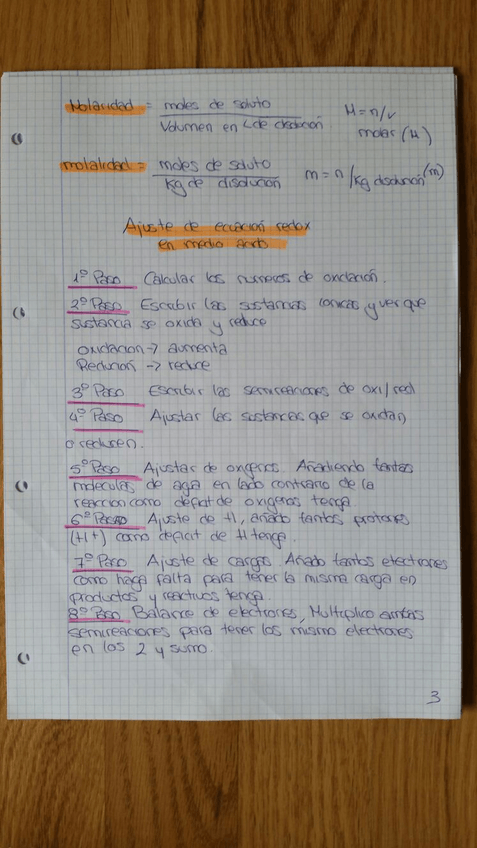 Molaridad = moles de soluto M = n/v
Volumen en L de disolución molar (M)
molalidad = moles de soluto m = n/Kg disolución (m)
Kg de disolución
Ajuste de ecuación redox
en medio ácido
1º Paso Calcular los numeros de oxidación.
2º Paso Escribir las sustancias ionicas, y ver que
sustancia se oxida y reduce
Oxidacion -> aumenta
Reducion -> reduce
3º Paso Escribir las semireaciones de oxi/red
4º Paso Ajustar las sustancias que se oxidan
o reducen.
5º Paso Ajustar de oxigenos. Añadiendo tantas
moleculas de agua en lado contrario de la
reaccion como deficit de oxigenos tenga
6º Paso Ajuste de H, añado tantos protones
(H+) como deficit de H tenga.
7º Paso Ajuste de cargas. Añado tantos electrones
como haga falta para tener la misma carga en
productos y reactivos tenga.
8º Paso Balance de electrones, Multiplico ambas
semireaciones para tener los mismo electrones
en los 2 y sumo.
3